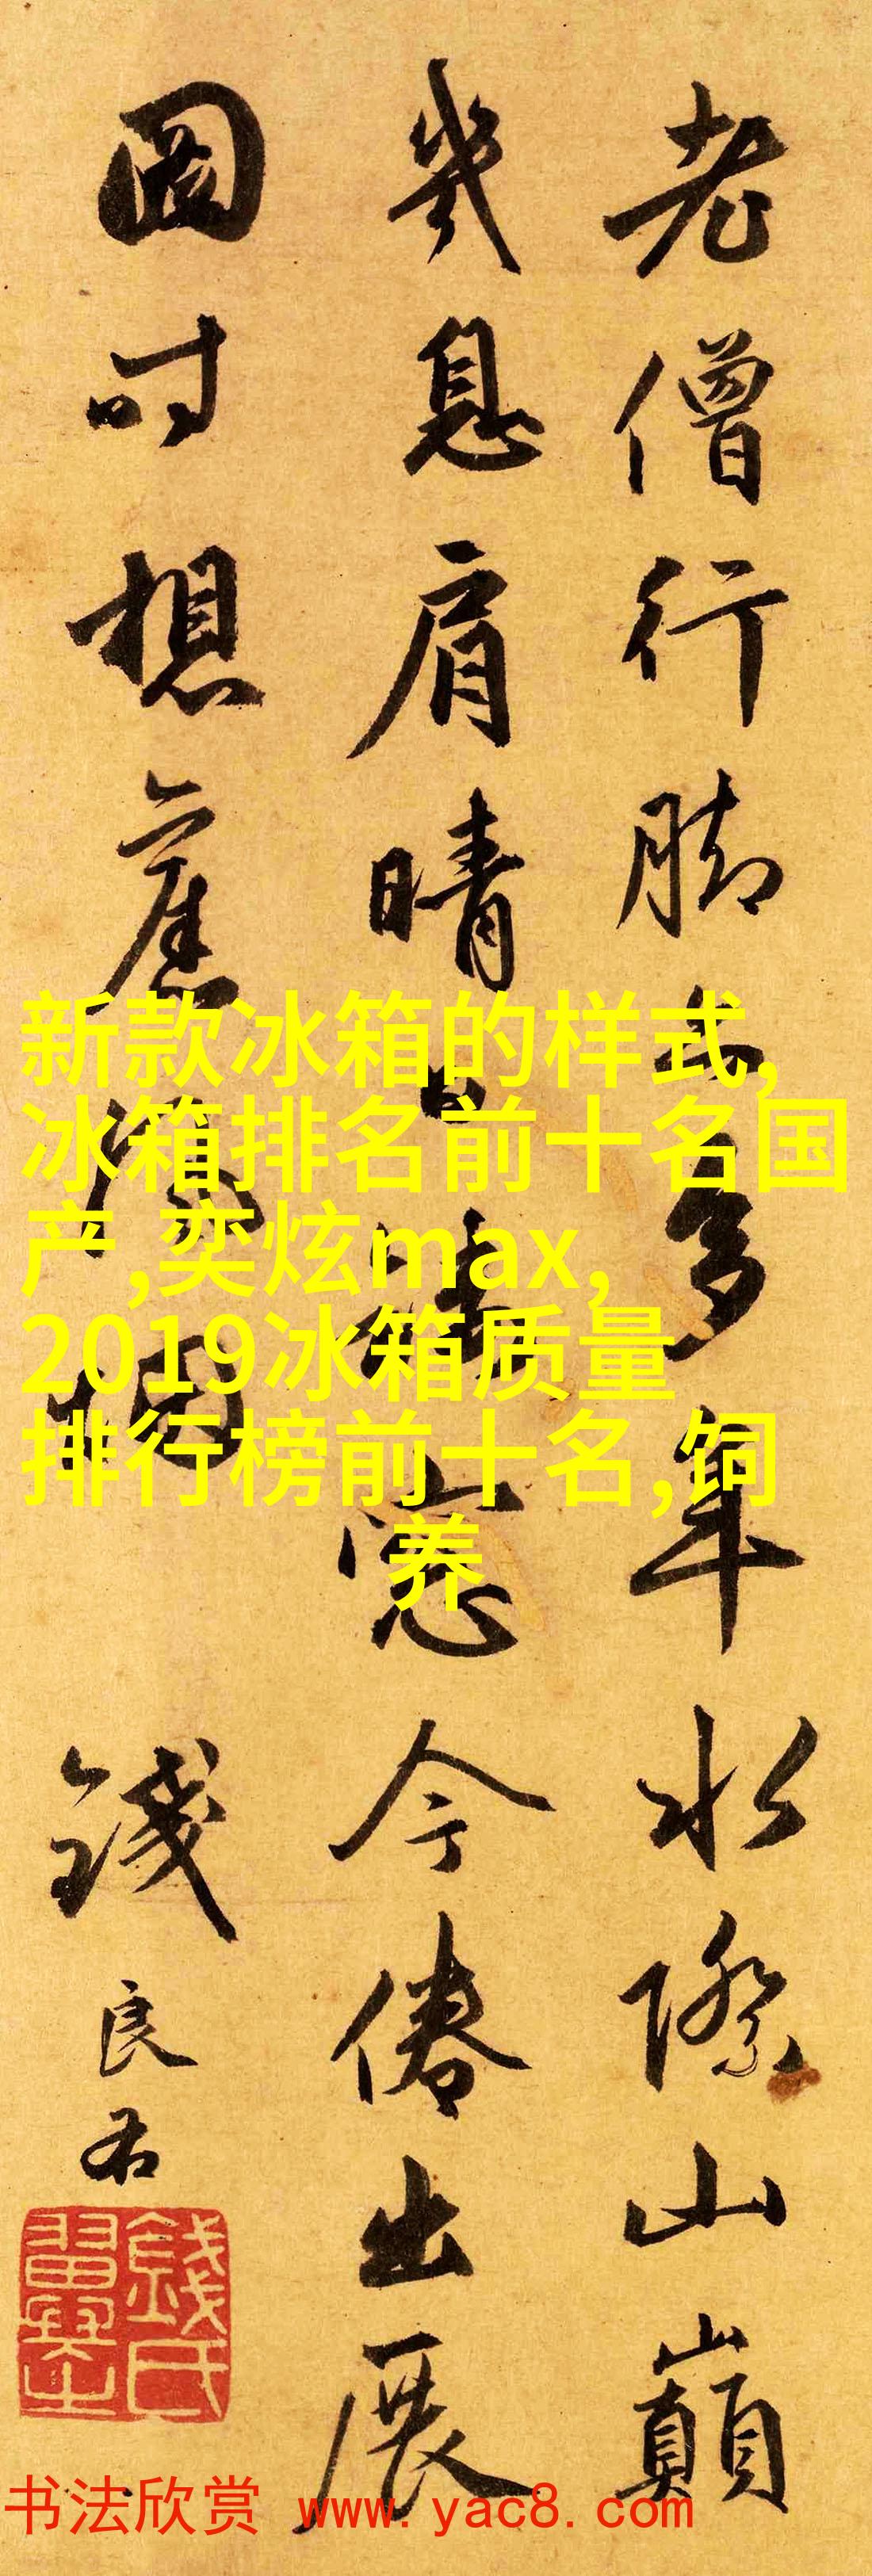 老僧行脚多年水際山巔
幾息肩晴日窓今倦出展
圖時想舊
錢良右
錢氏翼之
新款冰箱的样式,
冰箱排名前十名国
产,奕炫max,
2019冰箱质量
排行榜前十名,饲
养
书法欣赏 www.yac8.com